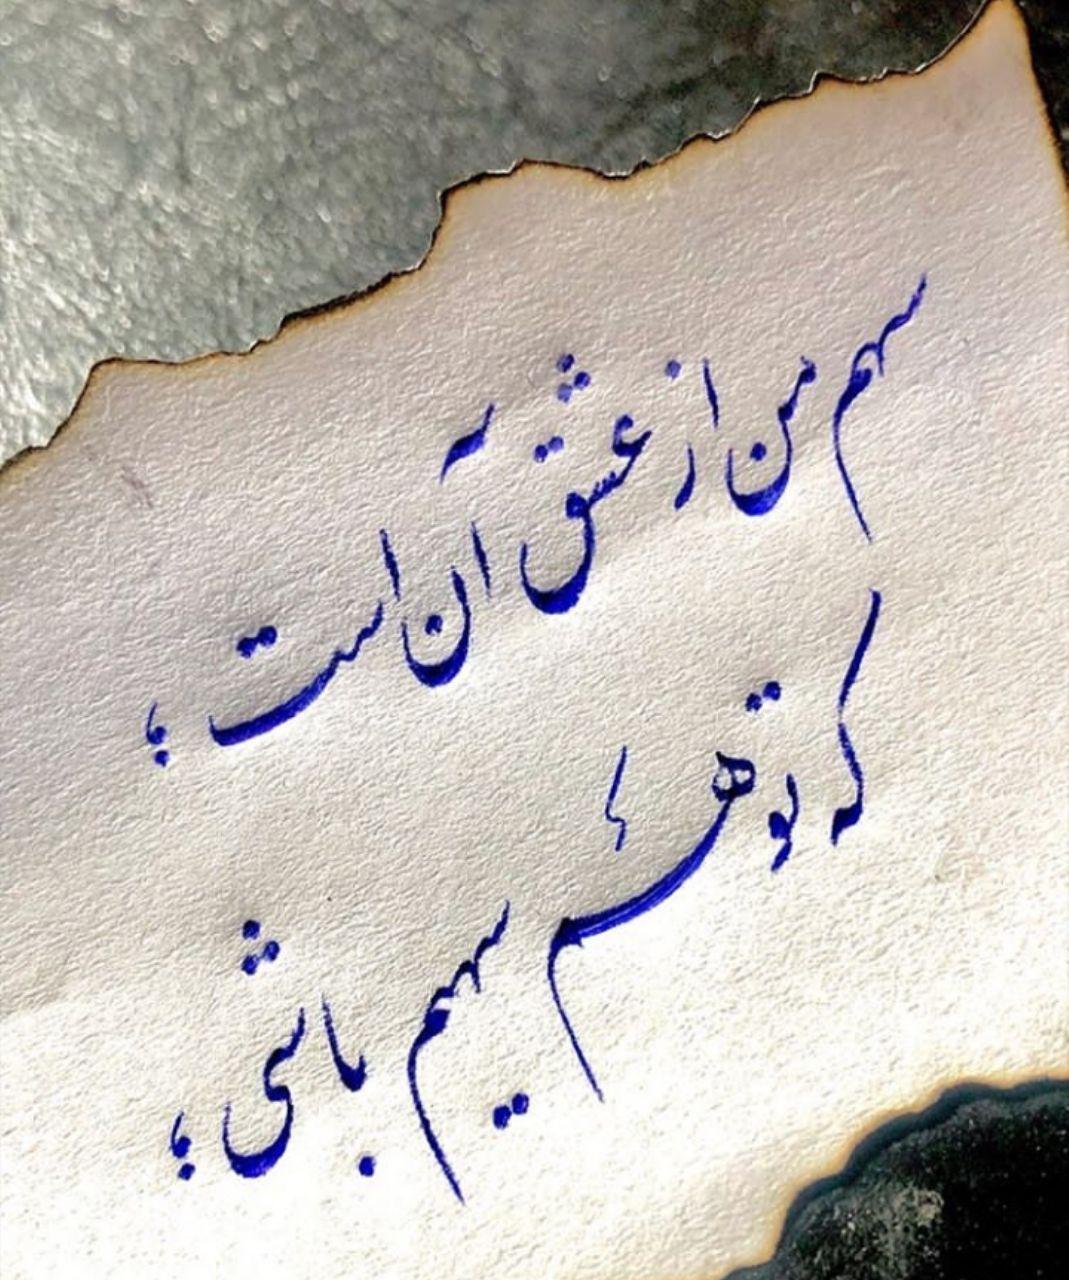 سهم من از عشق آن است ؛
که تو هم سهیم باشی ؛